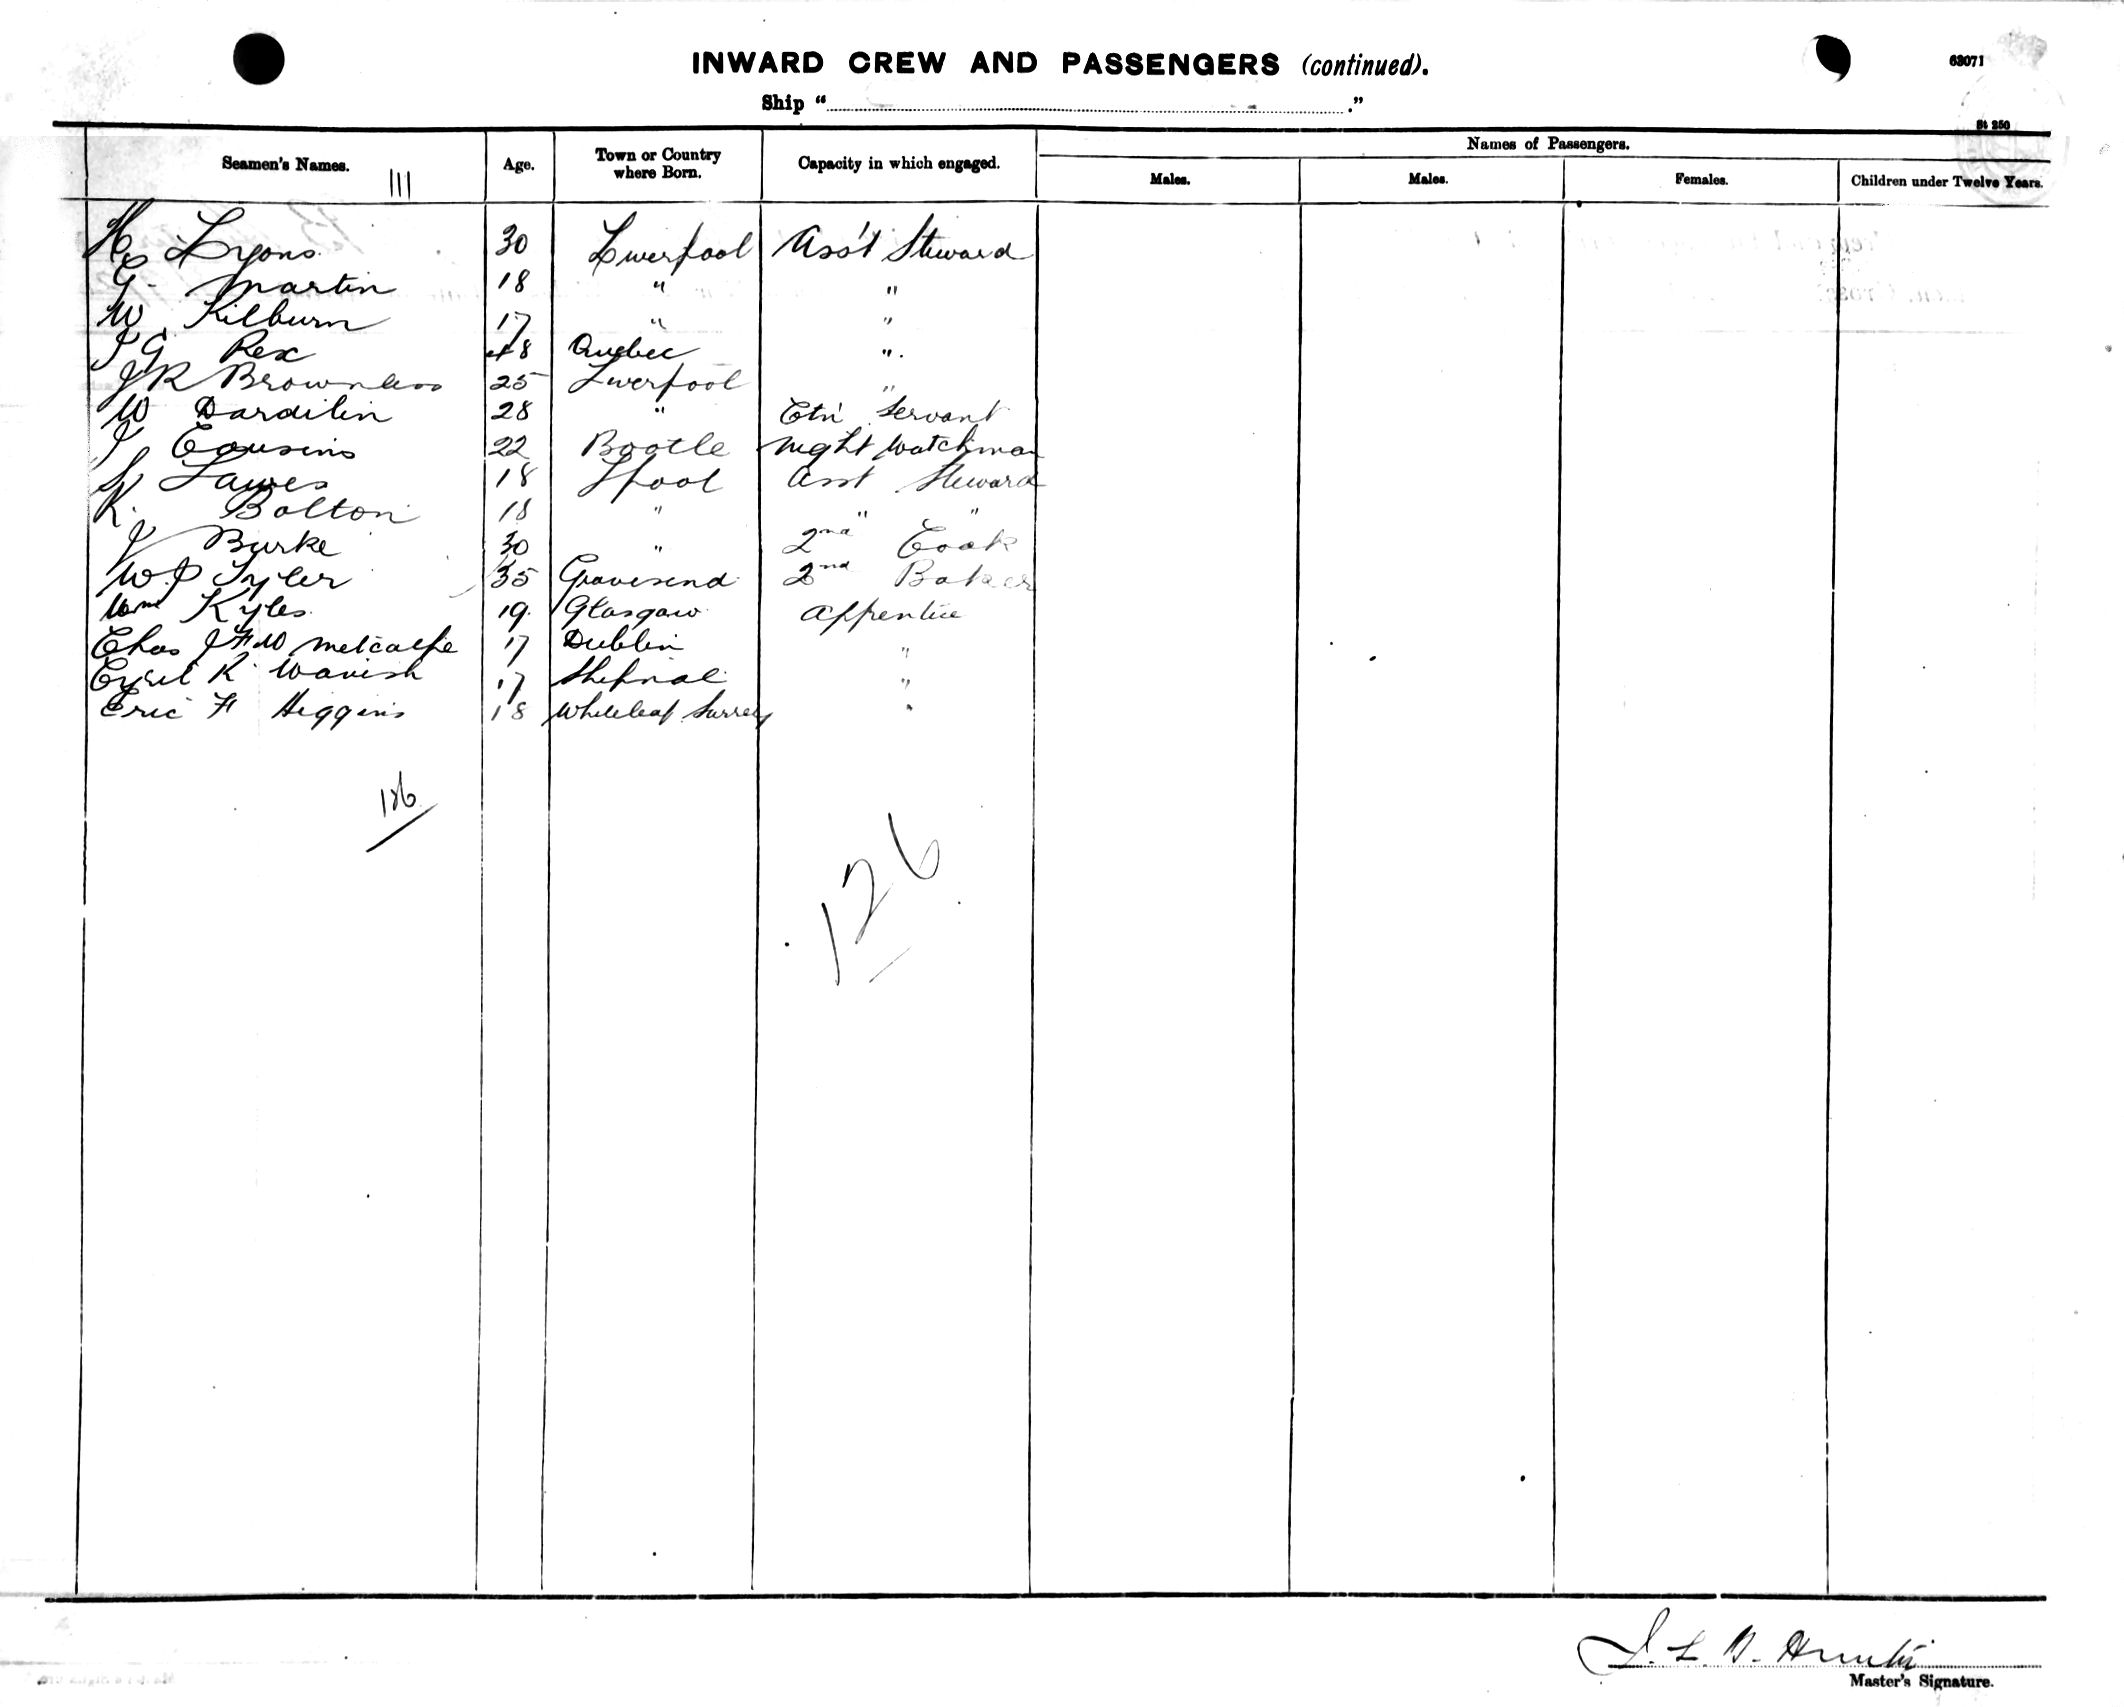 INWARD CREW AND PASSENGERS (continued).
63071
Ship " ."
St 250
Seamen's Names. Age. Town or Country where Born. Capacity in which engaged. Names of Passengers.
Males. Males. Females. Children under Twelve Years.
111
H Lyons 30 Liverpool Ass't Steward
G. Martin 18 " "
W. Kilburn 17 " "
J G Rex 48 Quebec "
J R Brownless 25 Liverpool "
W Dardilin 28 " Servant
J Cousins 22 Bootle Night Watchman
Lawes 18 L'pool Asst Steward
K. Bolton 18 " " "
J Burke 30 " 2nd Cook
W.P Tyler 35 Gravesend 2nd Baker
Wm Kyles 19 Glasgow Apprentice
Chas J F W Metcalfe 17 Dublin "
Cyril R Wavish 17 Shifnal "
Eric F Higgins 18 Whiteleaf Surrey "
126
126
Master's Signature.